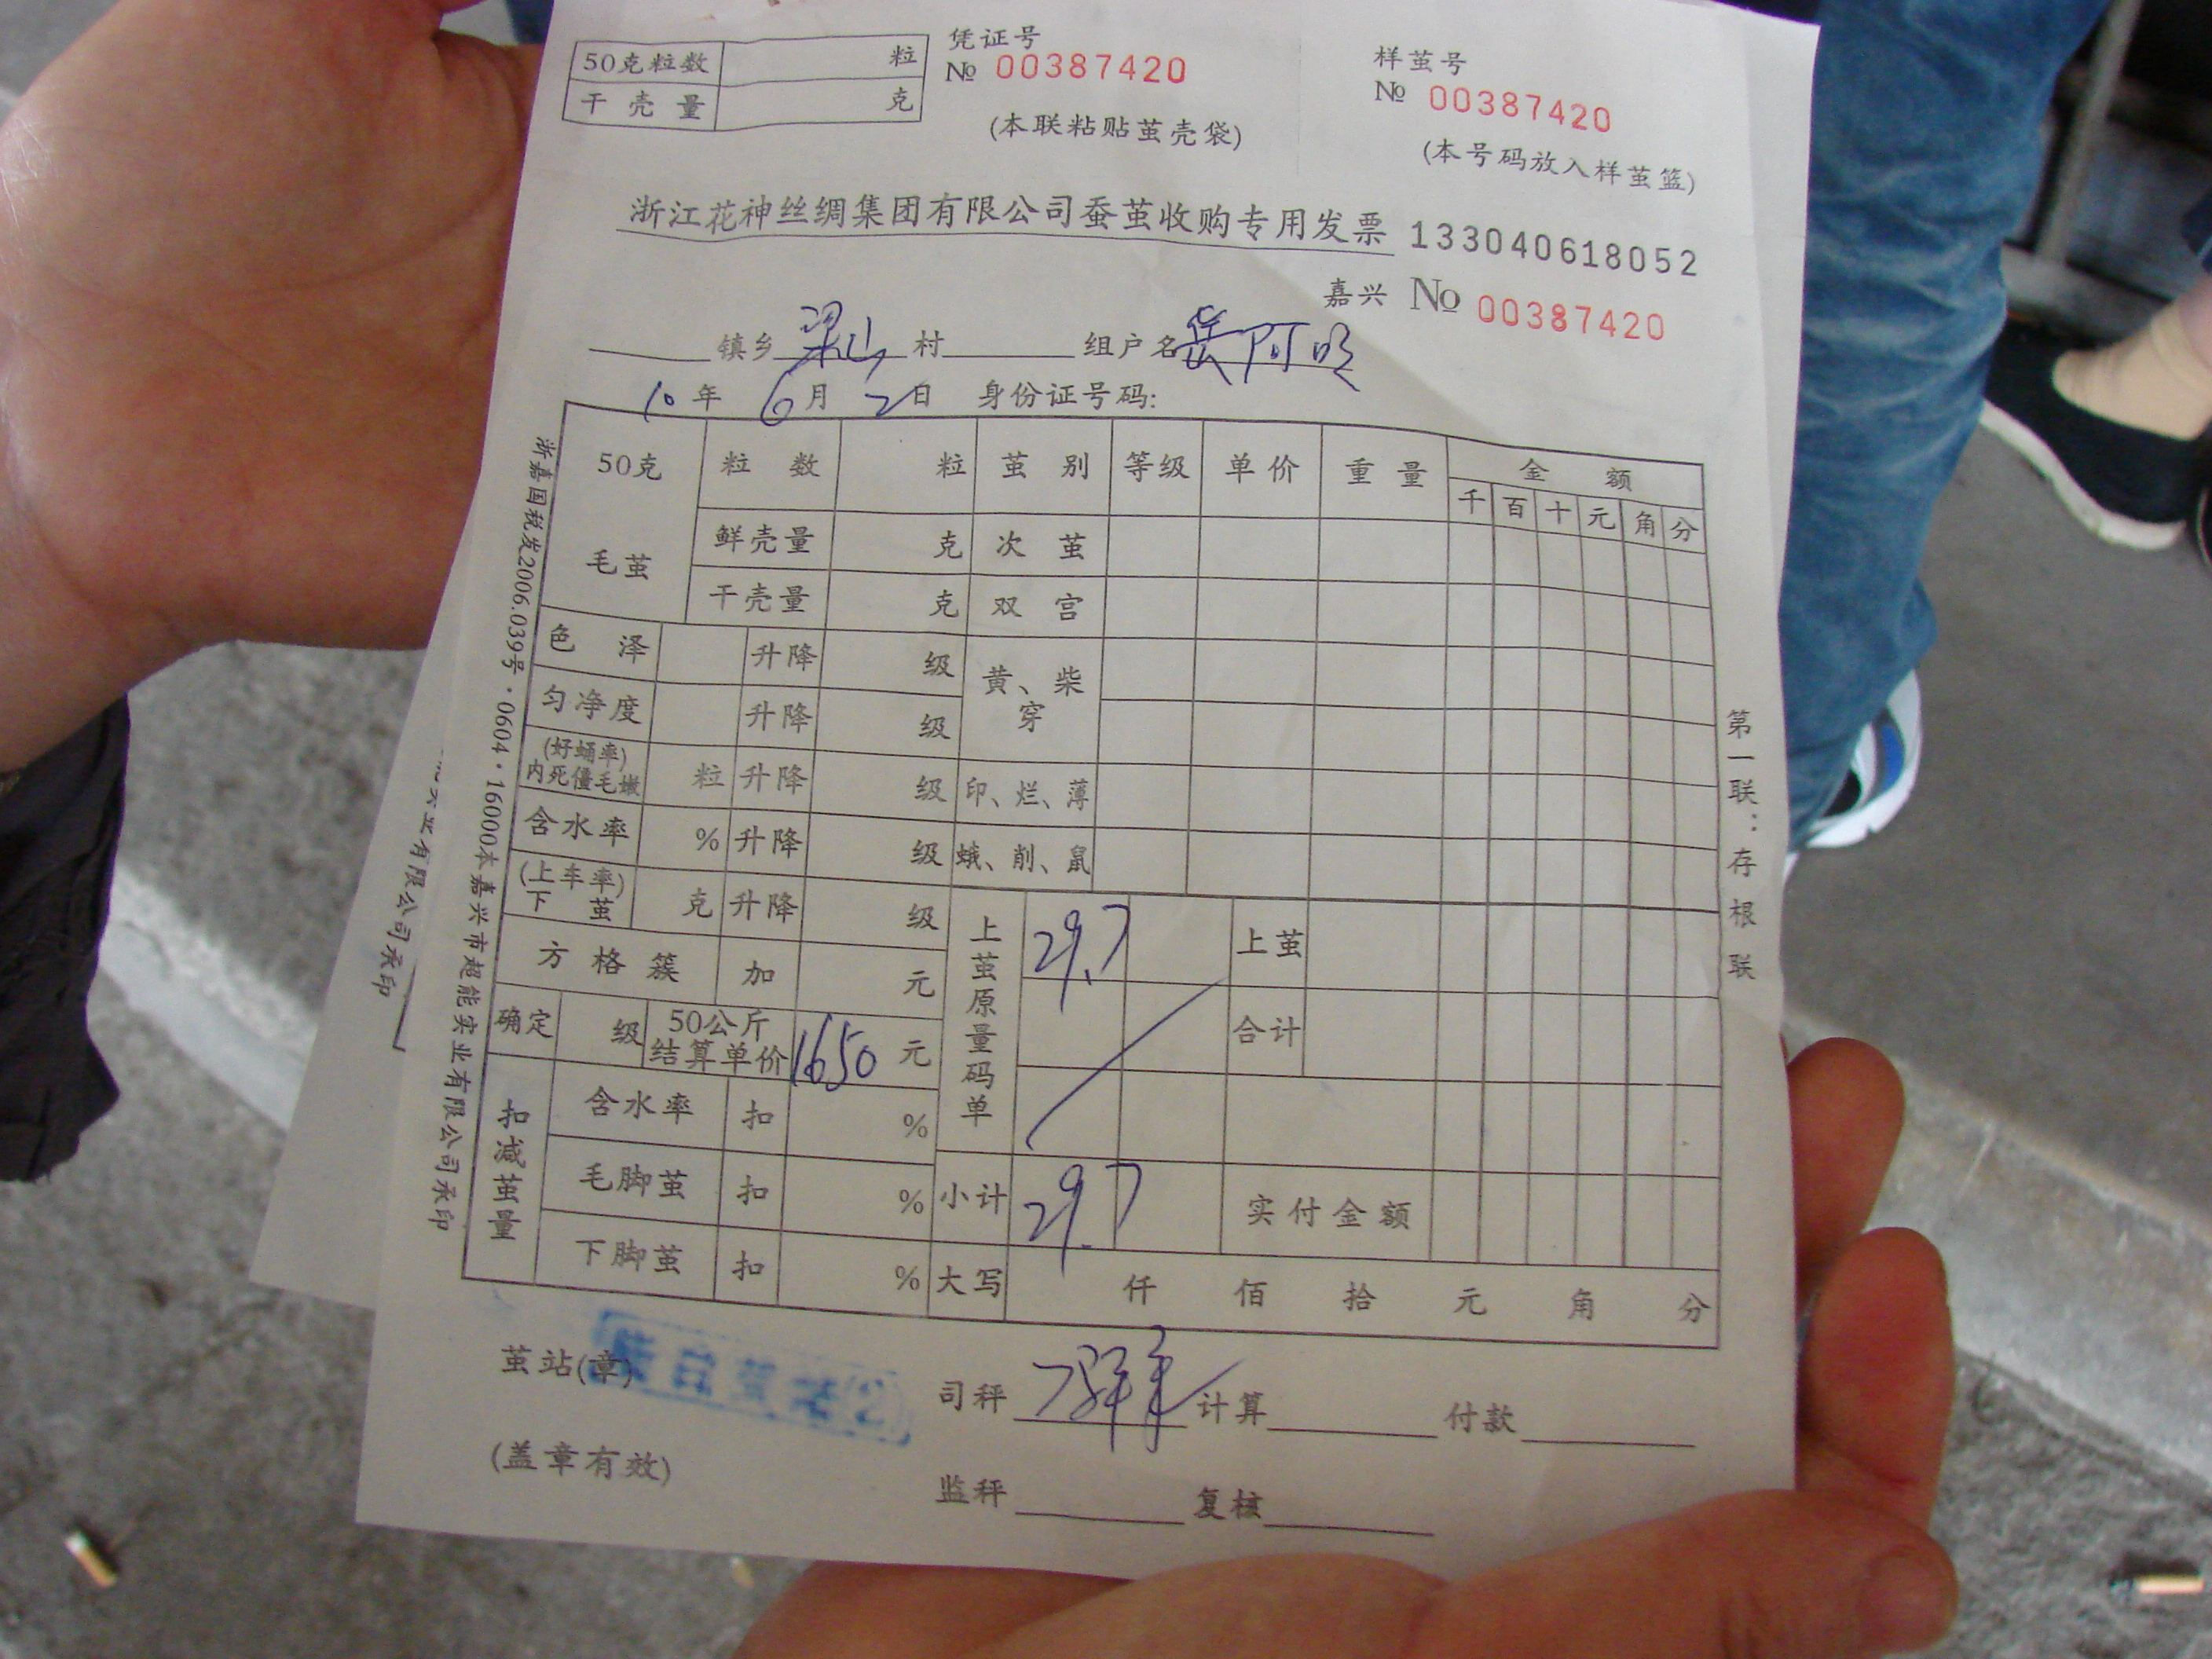 50克粒数 粒
干壳量 克
凭证号
№ 00387420
(本联粘贴茧壳袋)
样茧号
№ 00387420
(本号码放入样茧篮)
浙江花神丝绸集团有限公司蚕茧收购专用发票 133040618052
嘉兴 No 00387420
镇乡 梁山 村 组户名 岳阿明
10年 6月 2日 身份证号码:
50克 毛茧 粒数 粒 茧别 等级 单价 重量 金额
千 百 十 元 角 分
鲜壳量 克 次茧
干壳量 克 双宫
色泽 升降 级 黄、柴 穿
匀净度 升降 级
(好蛹率) 内死僵毛嫩 粒 升降 级 印、烂、薄
含水率 % 升降 级 蛾、削、鼠
(上车率) 下茧 克 升降 级 上茧原量码单 29.7 上茧
方格簇 加 元
确定 级 50公斤 结算单价 1650 元 合计
扣减茧量 含水率 扣 %
毛脚茧 扣 % 小计 29.7 实付金额
下脚茧 扣 % 大写 仟 佰 拾 元 角 分
茧站(章) 司秤 计算 付款
(盖章有效) 监秤 复核
浙嘉国税发2006.039号·0604·16000本嘉兴市超能实业有限公司承印
第一联:存根联
业有限公司承印